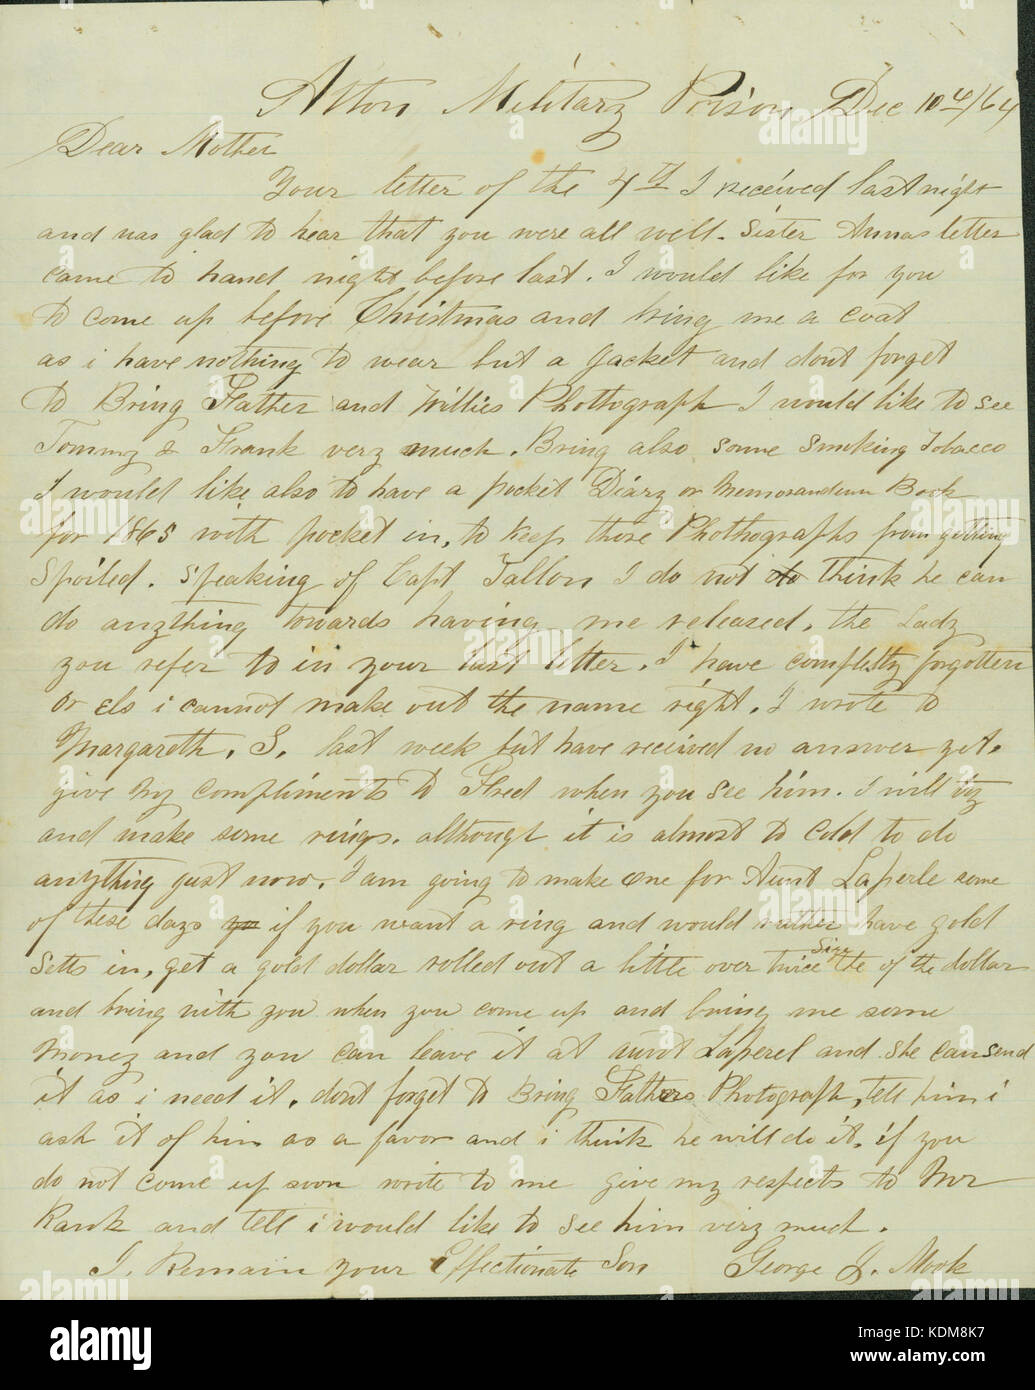 Alton Military Prison, Dec 10th/64
Dear Mother
Your letter of the 4th I received last night
and was glad to hear that you were all well. Sister Annas letter
came to hand night before last. I would like for you
to come up before Christmas and bring me a coat
as i have nothing to wear but a Jacket and dont forget
to Bring Father and Willies Photograph I would like to see
Tommy & Frank very much. Bring also some Smoking Tobacco
I would like also to have a pocket Diary or Memorandum Book
for 1865 with pocket in, to keep those Phothographs from getting
Spoiled. Speaking of Capt Tallon I do not do think he can
do anything towards having me released, the Lady
you refer to in your last letter. I have completly forgotten
or els i cannot make out the name right. I wrote to
Margareth. S. last week but have received no answer yet.
give my compliments to Fred when you see him. I will try
and make some rings. although it is almost to cold to do
anything just now. I am going to make one for Aunt Laperle some
of these days yo if you want a ring and would rather have gold
Setts in, get a gold dollar rolled out a little over twice the size of the dollar
and bring with you when you come up and bring me some
Money and you can leave it at aunt Laperel and she can send
it as i need it. dont forget to Bring Fathers Photograph, tell him i
ask it of him as a favor and i think he will do it. if you
do not come up soon write to me give my respects to Mr
Rank and tell i would like to see him very much.
I. Remain your Effectionate Son George J. Mook
alamy
Image ID: KDM8K7
www.alamy.com